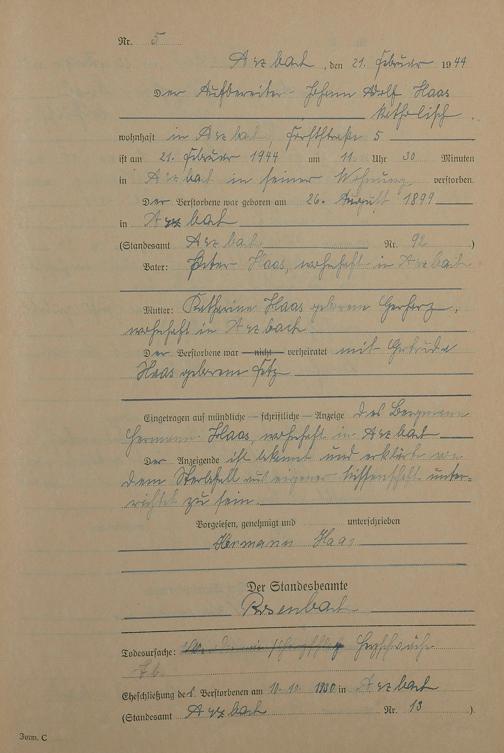 Nr. 5
Arzbach, den 21. Februar 1944
Der Aufbereiter Johann Adolf Haas
katholisch
wohnhaft in Arzbach, Forststraße 5
ist am 21. Februar 1944 um 11 Uhr 30 Minuten
in Arzbach in seiner Wohnung verstorben.
Der Verstorbene war geboren am 26. August 1899
in Arzbach
(Standesamt Arzbach Nr. 92)
Vater: Peter Haas, wohnhaft in Arzbach
Mutter: Katharina Haas geborene Gerharz,
wohnhaft in Arzbach
Der Verstorbene war nicht verheiratet mit Gertruda
Haas geborene
Eingetragen auf mündliche – schriftliche – Anzeige des Bergmann
Hermann Haas, wohnhaft in Arzbach
Der Anzeigende ist bekannt und erklärt von
dem Sterbefall aus eigener Wissenschaft unter-
richtet zu sein.
Vorgelesen, genehmigt und unterschrieben
Hermann Haas
Der Standesbeamte
Todesursache: Herzschwäche
Tb.
Eheschließung des Verstorbenen am 10.10. 1930 in Arzbach
(Standesamt Arzbach Nr. 13)
Form. C